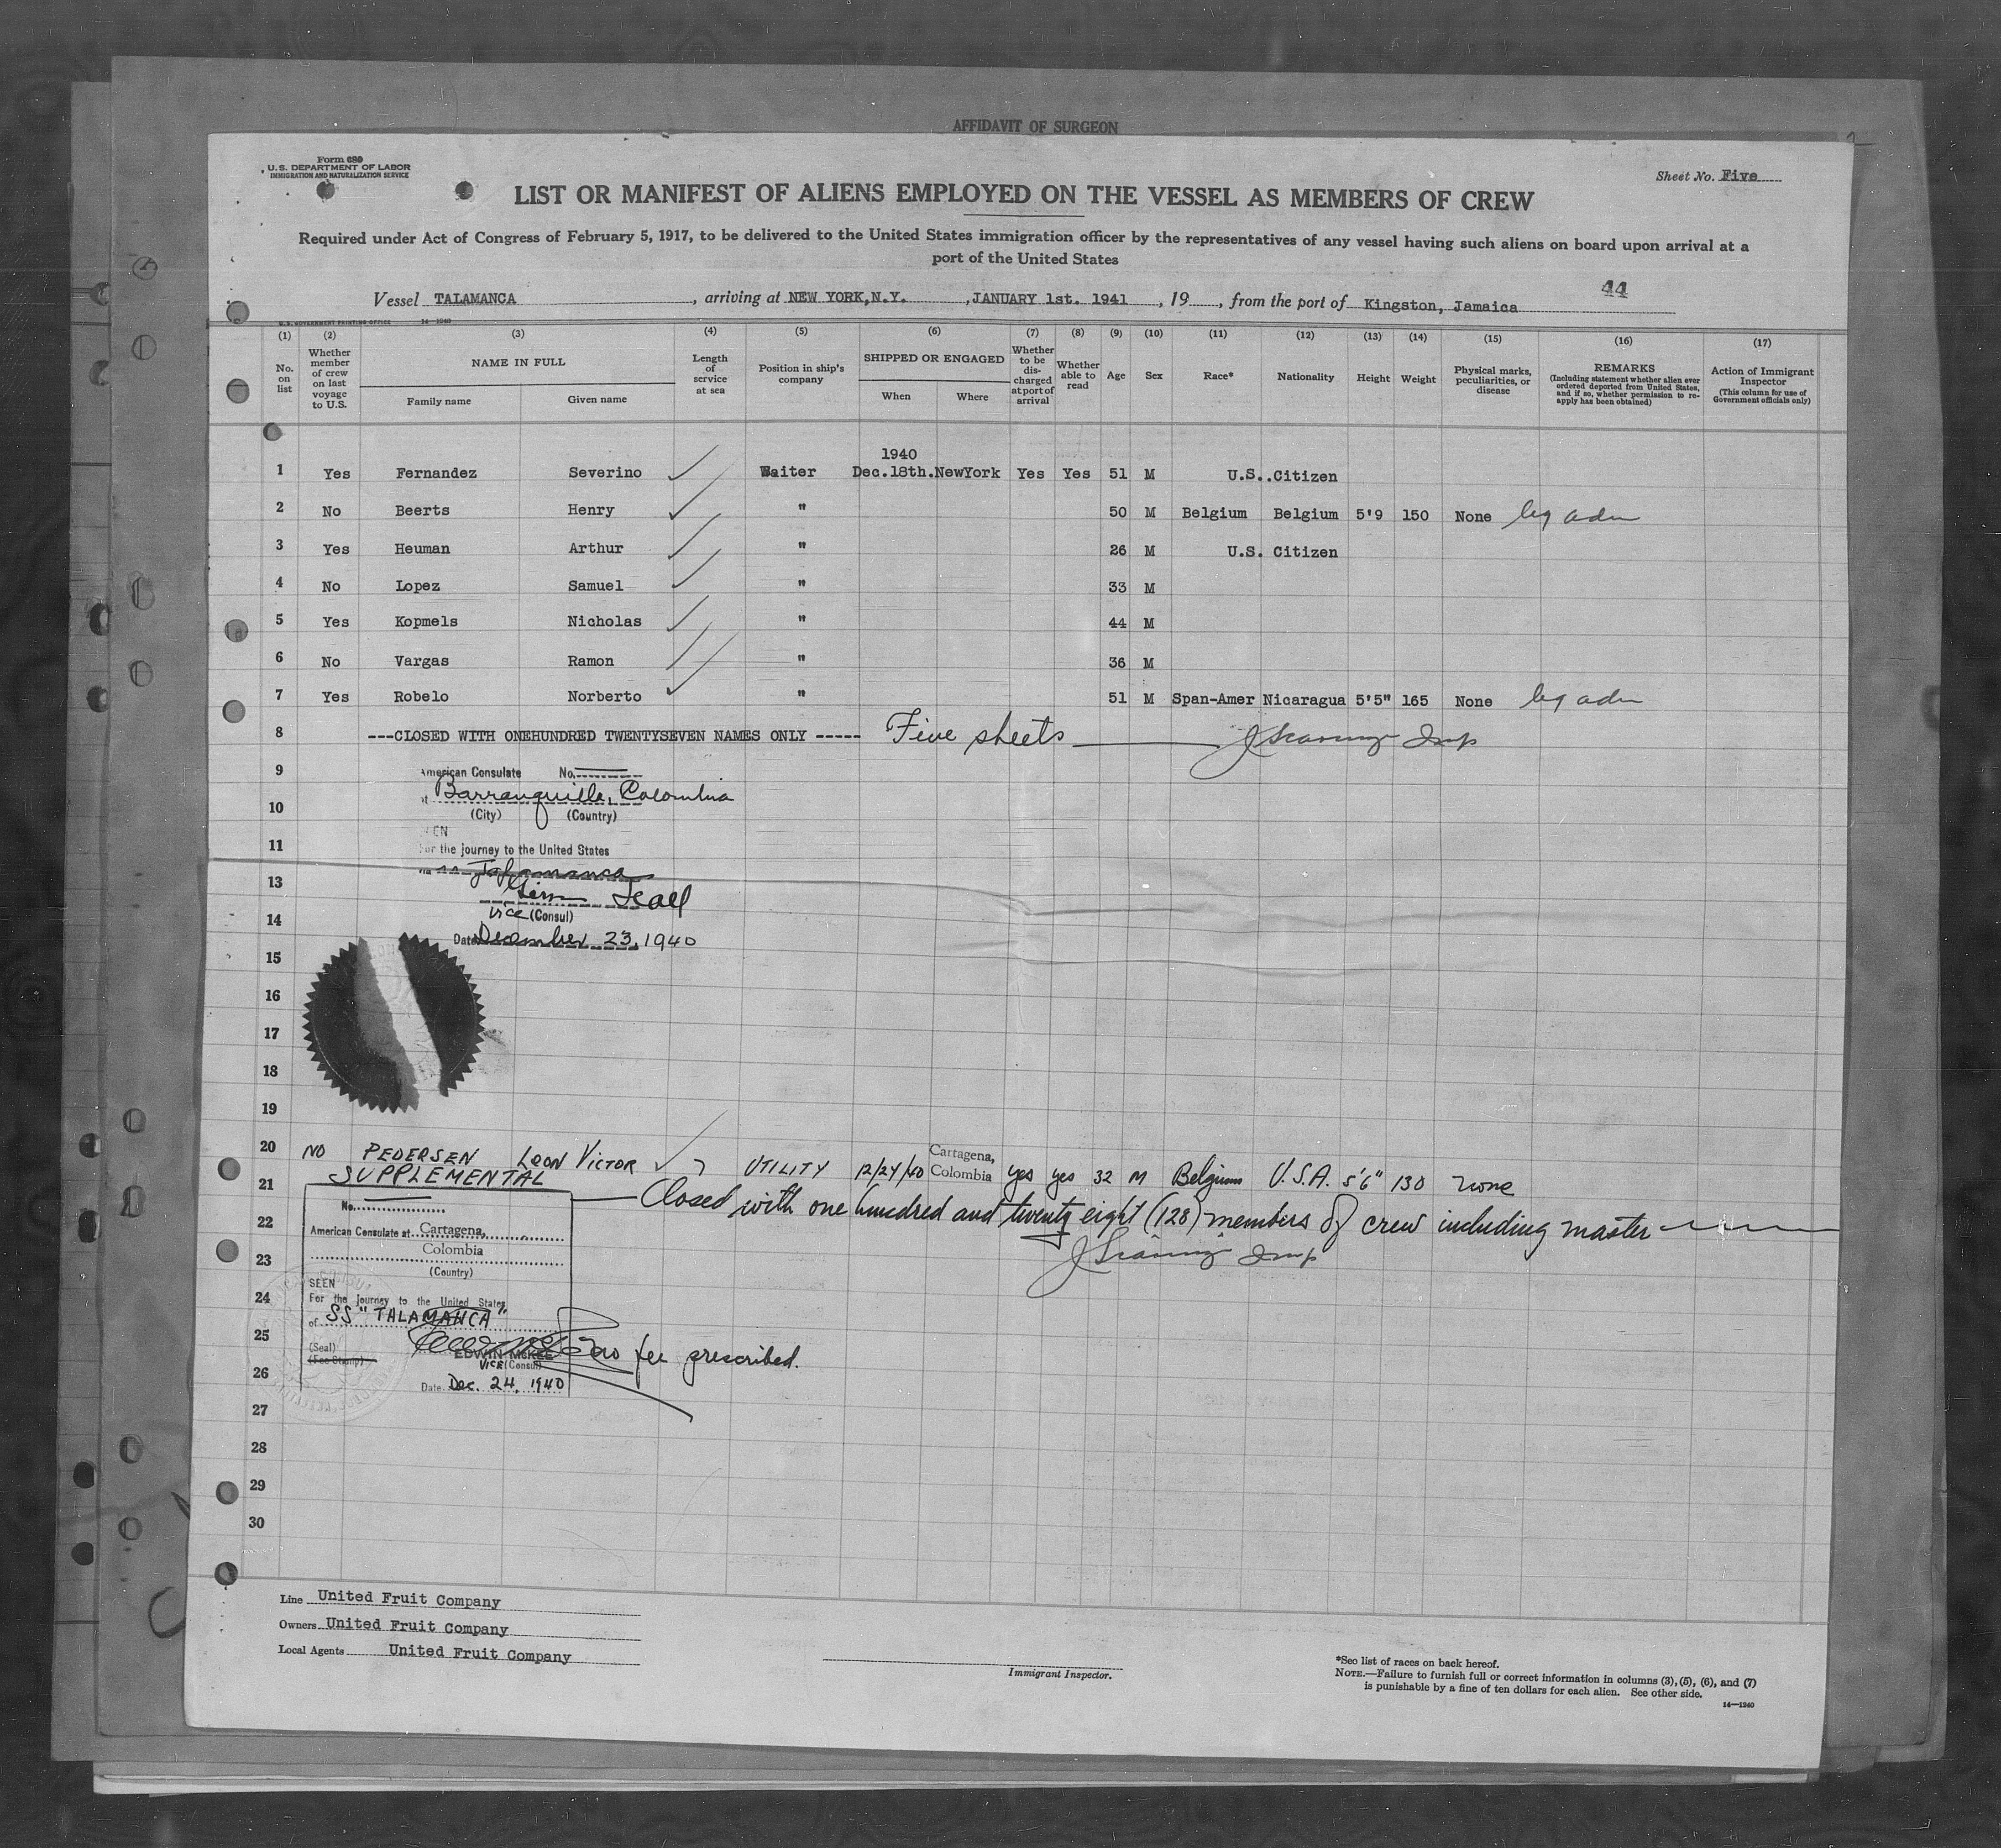 AFFIDAVIT OF SURGEON
Form 680
U.S. DEPARTMENT OF LABOR
IMMIGRATION AND NATURALIZATION SERVICE
Sheet No. Five
LIST OR MANIFEST OF ALIENS EMPLOYED ON THE VESSEL AS MEMBERS OF CREW
Required under Act of Congress of February 5, 1917, to be delivered to the United States immigration officer by the representatives of any vessel having such aliens on board upon arrival at a
port of the United States
44
Vessel TALAMANCA, arriving at NEW YORK,N.Y. ,JANUARY 1st. 1941, 19, from the port of Kingston, Jamaica
U.S. GOVERNMENT PRINTING OFFICE 14—1240
(1) (2) (3) (4) (5) (6) (7) (8) (9) (10) (11) (12) (13) (14) (15) (16) (17)
No. on list
Whether member of crew on last voyage to U.S.
NAME IN FULL
Family name Given name
Length of service at sea
Position in ship's company
SHIPPED OR ENGAGED
When Where
Whether to be discharged at port of arrival
Whether able to read
Age
Sex
Race*
Nationality
Height
Weight
Physical marks, peculiarities, or disease
REMARKS
(Including statement whether alien ever ordered deported from United States, and if so, whether permission to re-apply has been obtained)
Action of Immigrant Inspector
(This column for use of Government officials only)
1940
1 Yes Fernandez Severino Waiter Dec.18th.NewYork Yes Yes 51 M U.S..Citizen
2 No Beerts Henry " 50 M Belgium Belgium 5'9 150 None leg adm
3 Yes Heuman Arthur " 26 M U.S. Citizen
4 No Lopez Samuel " 33 M
5 Yes Kopmels Nicholas " 44 M
6 No Vargas Ramon " 36 M
7 Yes Robelo Norberto " 51 M Span-Amer Nicaragua 5'5" 165 None leg adm
8 ---CLOSED WITH ONEHUNDRED TWENTYSEVEN NAMES ONLY ----- Five sheets Insp
9 American Consulate No.
Barranquilla, Colombia
10 (City) (Country)
11 For the journey to the United States
Talamanca
13
Vice (Consul)
14
Date December 23, 1940
15
16
17
18
19
20 NO PEDERSEN LEON VICTOR UTILITY 12/24/40 Cartagena, Colombia yes yes 32 M Belgium U.S.A. 5'6" 130 none
SUPPLEMENTAL
21 Closed with one hundred and twenty eight (128) members of crew including master
No.
22 American Consulate at Cartagena,
Colombia
Insp
23 (Country)
SEEN
24 For the journey to the United States
of SS "TALAMANCA"
25 (Seal)
(Fee Stamp)
EDWIN McKEE no fee prescribed.
VICE (Consul)
26 Date Dec. 24, 1940
27
28
29
30
Line United Fruit Company
Owners United Fruit Company
Local Agents United Fruit Company
Immigrant Inspector.
*See list of races on back hereof.
NOTE.—Failure to furnish full or correct information in columns (3), (5), (6), and (7)
is punishable by a fine of ten dollars for each alien. See other side.
14—1240